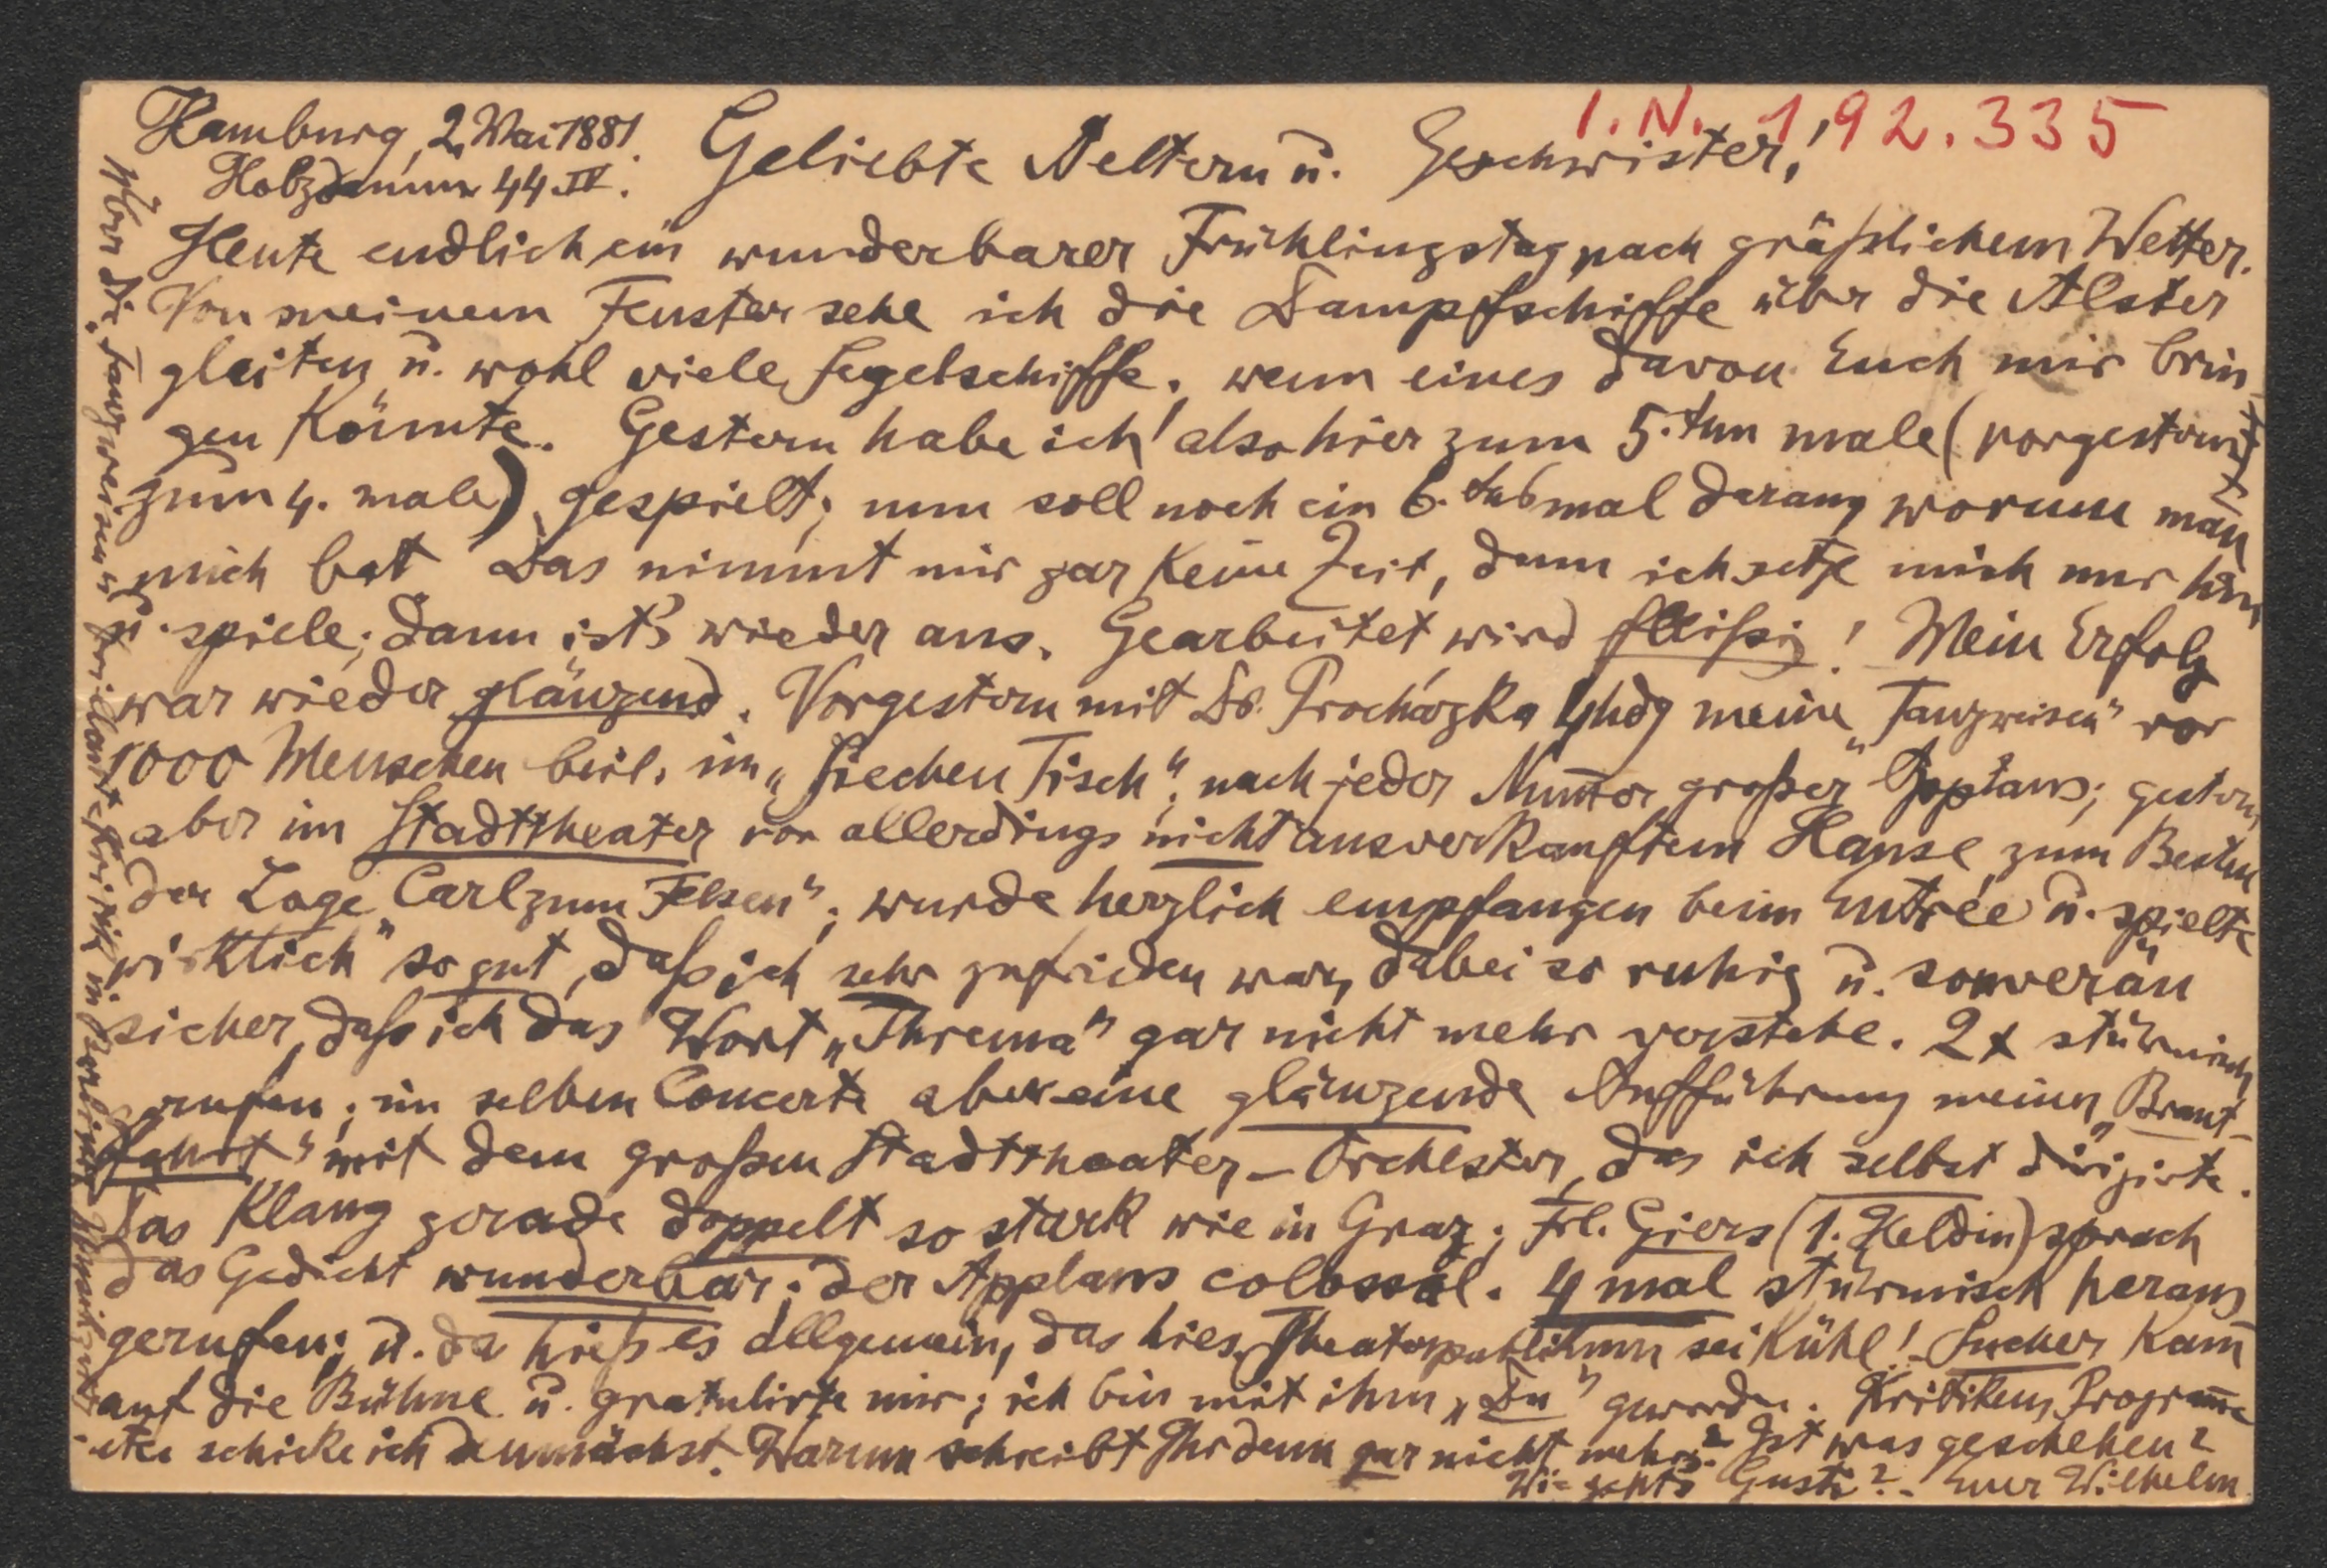 I. N. 192.335
Hamburg, 2. Mai 1881.
Holzdamm 44. IV.
Geliebte Aeltern u. Geschwister!
Heute endlich ein wunderbarer Frühlingstag nach gräßlichem Wetter.
Von meinem Fenster sehe ich die Dampfschiffe über die Alster
gleiten u. wohl viele Segelschiffe. wenn eines davon Euch mir brin-
gen könnte. Gestern habe ich also hier zum 5. ten male (vorgestern
zum 4. male) gespielt; nun soll noch ein 6. tes mal daran, worum man
mich bat. Das nimmt mir gar keine Zeit, denn ich setze mich nur hin
u. spiele; dann ist's wieder aus. Gearbeitet wird fleißig! Mein Erfolg
war wieder glänzend. Vorgestern mit Dr. Procházka 4hdg meine „Tanzweisen" vor
1000 Menschen beil. im „Siechen Tisch"; nach jeder Num̅er großer Applaus; gestern
aber im Stadttheater vor allerdings nicht ausverkauftem Hause zum Besten
der Loge „Carl zum Felsen"; wurde herzlich empfangen beim Entrée u. spielte
wirklich so gut, daß ich sehr zufrieden war, dabei so ruhig u. souverän
sicher, daß ich das Wort „Threma" gar nicht mehr verstehe. 2 x stürmisch
gerufen; im selben Concerte aber eine glänzende Aufführung meiner „Braut-
fahrt" mit dem großen Stadttheater-Orchester, das ich selbst dirigirte.
Das Klang gerade doppelt so stark wie in Graz; Frl. Giers (1. Heldin) sprach
das Gedicht wunderbar; der Applaus colossal. 4 mal stürmisch heraus
gerufen; u. da hieß es allgemein, das hies. Theaterpublikum sei kühl! Sucher kam
auf die Bühne u. gratulirte mir; ich bin mit ihm „Du" geworden. Kritiken, Program̅e
etc schicke ich demnächst. Warum schreibt Ihr denn gar nicht mehr? Ist was geschehen?
Wie gehts Gusti? - Euer Wilhelm
Über die „Tanzweisen" brillante Kritik in